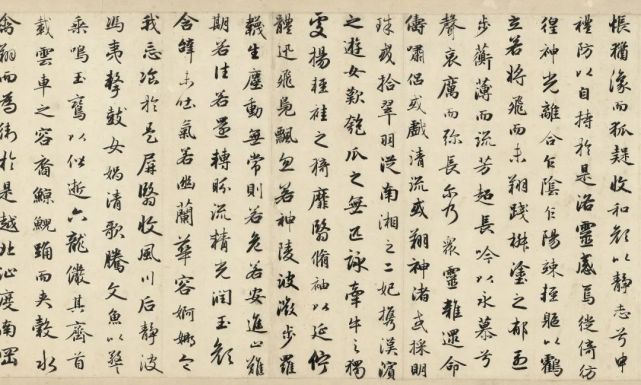 悵猶豫而狐疑收和顏以靜志兮申
禮防以自持於是洛靈感焉徙倚彷
徨神光離合乍陰乍陽竦輕軀以鶴
立若將飛而未翔踐椒塗之郁烈
步蘅薄而流芳超長吟以永慕兮
聲哀厲而彌長爾乃眾靈雜遝命
儔嘯侶或戲清流或翔神渚或採明
珠或拾翠羽從南湘之二妃攜漢濱
之遊女歎匏瓜之無匹詠牽牛之獨
處揚輕袿之猗靡翳脩袖以延佇
體迅飛鳧飄忽若神陵波微步羅
韈生塵動無常則若危若安進止難
期若往若還轉眄流精光潤玉顏
含辭未吐氣若幽蘭華容婀娜令
我忘飡於是屏翳收風川后靜波
馮夷擊鼓女媧清歌騰文魚以警
乘鳴玉鸞以偕逝六龍儼其齊首
載雲車之容裔鯨鯢踊而夾轂水
禽翔而為衛於是越北沚度南岡